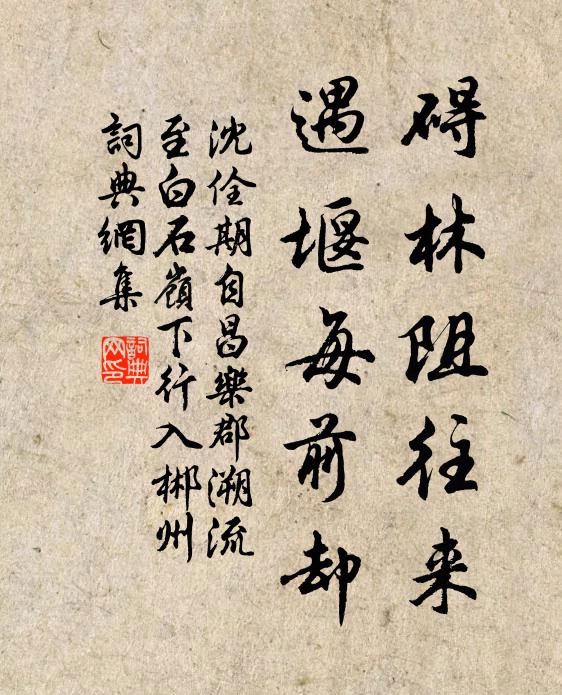 碍林阻往来
遇堰每前却
沈佺期自昌樂郡溯流
至白石嶺下行入郴州
詞典網集
詞典网印